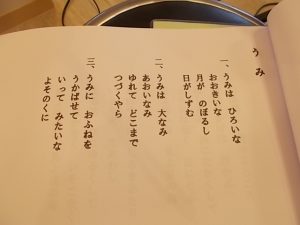 うみ
一、うみは ひろいな
おおきいな
月が のぼるし
日がしずむ
二、うみは 大なみ
あおいなみ
ゆれて どこまで
つづくやら
三、うみに おふねを
うかばせて
いって みたいな
よそのくに